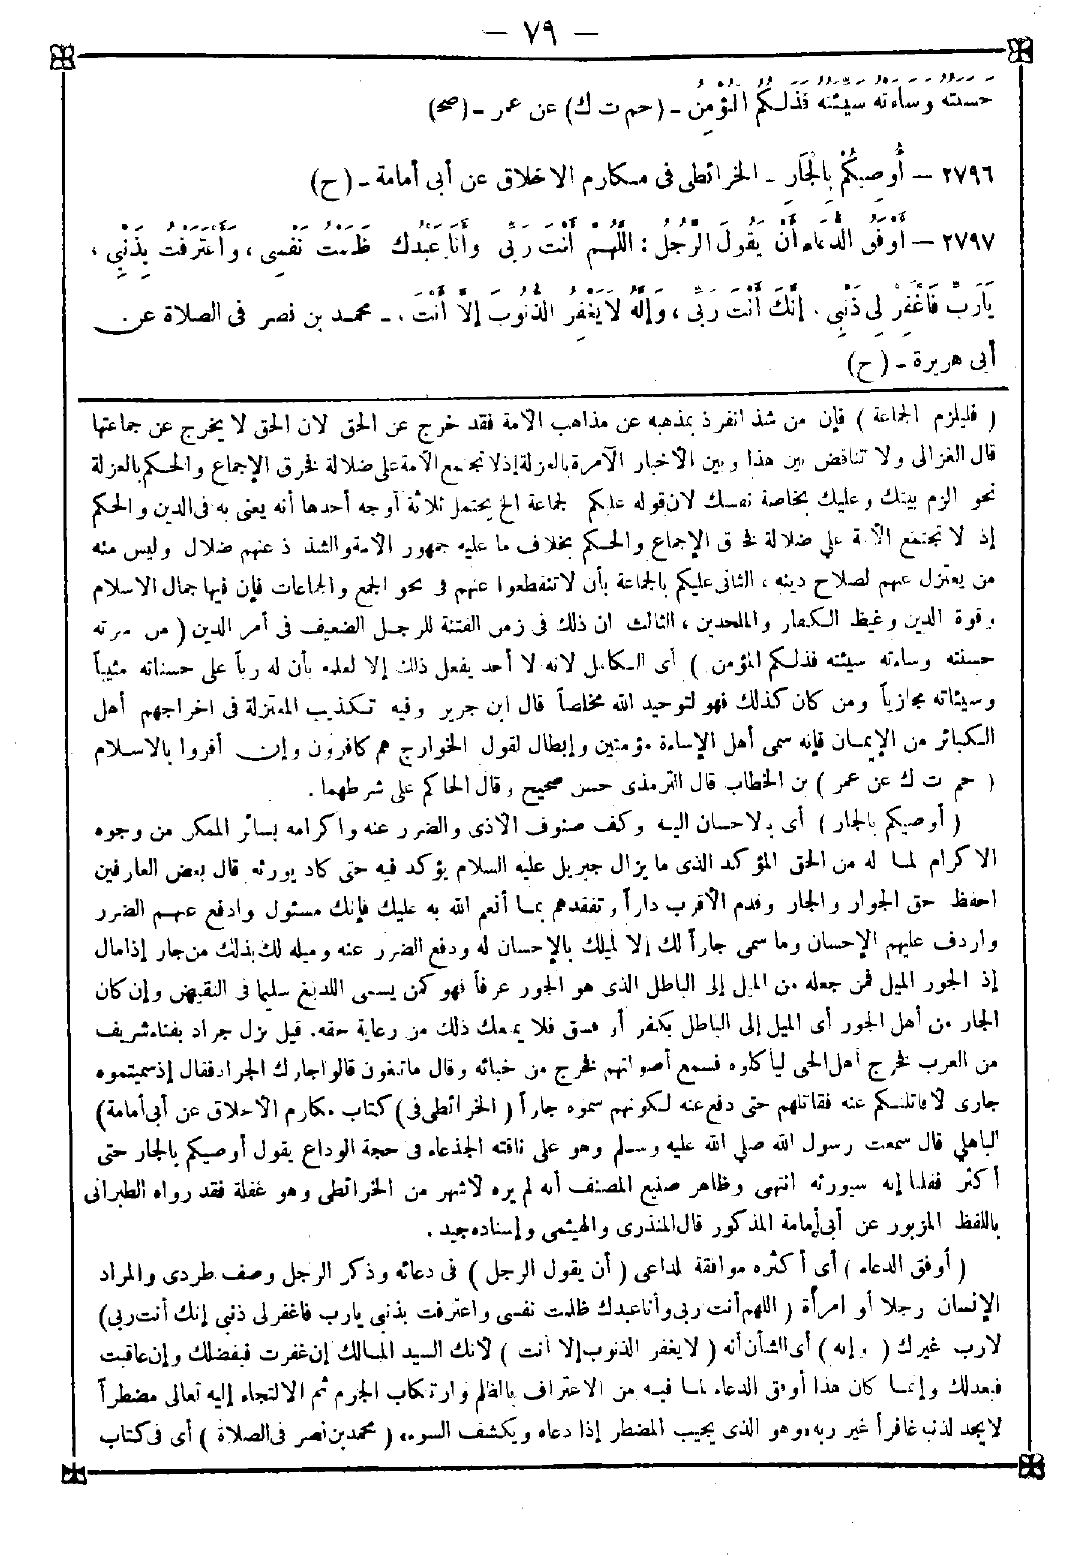 — ٧٩ —
حَسَنَتُهُ وَسَاءَتْهُ سَيِّئَتُهُ فَذَلِكُمُ الْمُؤْمِنُ - (حم ت ك) عن عمر - (صح)
٢٧٩٦ - أُوصِيكُمْ بِالْجَارِ - الخرائطى فى مكارم الاخلاق عن أبى أمامة - (ح)
٢٧٩٧ - أَوْفَقُ الدُّعَاءِ أَنْ يَقُولَ الرَّجُلُ : اللَّهُمَّ أَنْتَ رَبِّى وَأَنَا عَبْدُكَ ظَلَمْتُ نَفْسِى ، وَاعْتَرَفْتُ بِذَنْبِى ،
يَارَبِّ فَاغْفِرْ لِى ذَنْبِى . إِنَّكَ أَنْتَ رَبِّى ، وَإِنَّهُ لَا يَغْفِرُ الذُّنُوبَ إِلَّا أَنْتَ . - محمد بن نصر فى الصلاة عن
أبى هريرة - (ح)
( فليلزم الجماعة ) فإن من شذ انفرد بمذهبه عن مذاهب الأمة فقد خرج عن الحق لان الحق لا يخرج عن جماعتها
قال الغزالى ولا تناقض بين هذا وبين الأخبار الآمرة بالعزلة إذ لا تجتمع الأمة على ضلالة فخرق الإجماع والحكم بالعزلة
نحو الزم بيتك وعليك بخاصة نفسك لان قوله عليكم لجماعة الخ يحتمل ثلاثة أوجه أحدها أنه يعنى به فى الدين والحكم
إذ لا تجتمع الأمة على ضلالة فخرق الإجماع والحكم بخلاف ما عليه جمهور الأمة والشذوذ عنهم ضلال وليس منه
من يعتزل عنهم لصلاح دينه ، الثانى عليكم بالجماعة بأن لا تنقطعوا عنهم فى نحو الجمع والجماعات فإن فيها جمال الاسلام
وقوة الدين وغيظ الكفار والملحدين ، الثالث ان ذلك فى زمن الفتنة للرجل الضعيف فى أمر الدين ( من سرته
حسنته وساءته سيئته فذلكم المؤمن ) أى الكامل لانه لا أحد يفعل ذلك إلا لعلمه بأن له رباً على حسناته مثيباً
وسيئاته مجازياً ومن كان كذلك فهو لتوحيد الله مخلصاً قال ابن جرير وفيه تكذيب المعتزلة فى اخراجهم أهل
الكبائر من الإيمان فإنه سمى أهل الإساءة مؤمنين وإبطال لقول الخوارج هم كافرون وإن أقروا بالاسلام
( حم ت ك عن عمر ) بن الخطاب قال الترمذى حسن صحيح وقال الحاكم على شرطهما .
( أوصيكم بالجار ) أى بالاحسان اليه وكف صنوف الأذى والضرر عنه واكرامه بسائر الممكن من وجوه
الاكرام لما له من الحق المؤكد الذى ما يزال جبريل عليه السلام يؤكد فيه حتى كاد يورثه قال بعض العارفين
احفظ حق الجوار والجار وقدم الأقرب داراً وتفقدهم بما أنعم الله به عليك فإنك مسئول وادفع عنهم الضرر
واردف عليهم الإحسان وما سمى جاراً لك إلا لميلك بالإحسان له ودفع الضرر عنه وميله لك بذلك من جار إذا مال
إذ الجور الميل فمن جعله من الميل إلى الباطل الذى هو الجور عرفاً فهو كمن يسمى اللديغ سليما فى النقيض وإن كان
الجار من أهل الجور أى الميل إلى الباطل بكفر أو فسق فلا يمنعك ذلك من رعاية حقه . قيل نزل جراد بفناء شريف
من العرب فخرج أهل الحى ليأكلوه فسمع أصواتهم فخرج من خبائه وقال ما تبغون قالوا جارك الجراد فقال إذ سميتموه
جارى لأقاتلنكم عنه فقاتلهم حتى دفع عنه لكونهم سموه جاراً ( الخرائطى فى ) كتاب مكارم الأخلاق عن أبى أمامة)
الباهلي قال سمعت رسول الله صلي الله عليه وسلم وهو على ناقته الجذعاء فى حجة الوداع يقول أوصيكم بالجار حتى
أكثر فقلنا إنه سيورثه انتهى وظاهر صنيع المصنف أنه لم يره لأشهر من الخرائطى وهو غفلة فقد رواه الطبرانى
باللفظ المزبور عن أبى أمامة المذكور قال المنذرى والهيثمى وإسناده جيد .
( أوفق الدعاء ) أى أكثره موافقة لداعى ( أن يقول الرجل ) فى دعائه وذكر الرجل وصف طردى والمراد
الإنسان رجلا أو امرأة ( اللهم أنت ربى وأنا عبدك ظلمت نفسى واعترفت بذنبى يارب فاغفر لى ذنبى إنك أنت ربى)
لا رب غيرك ( وإنه ) أى الشأن أنه ( لا يغفر الذنوب إلا أنت ) لأنك السيد المالك إن غفرت فبفضلك وإن عاقبت
فبعدلك وإنما كان هذا أوفق الدعاء لما فيه من الاعتراف بالظلم وارتكاب الجرم ثم الالتجاء إليه تعالى مضطراً
لا يجد لذنبه غافراً غير ربه وهو الذى يجيب المضطر إذا دعاه ويكشف السوء ( محمد بن نصر فى الصلاة ) أى فى كتاب